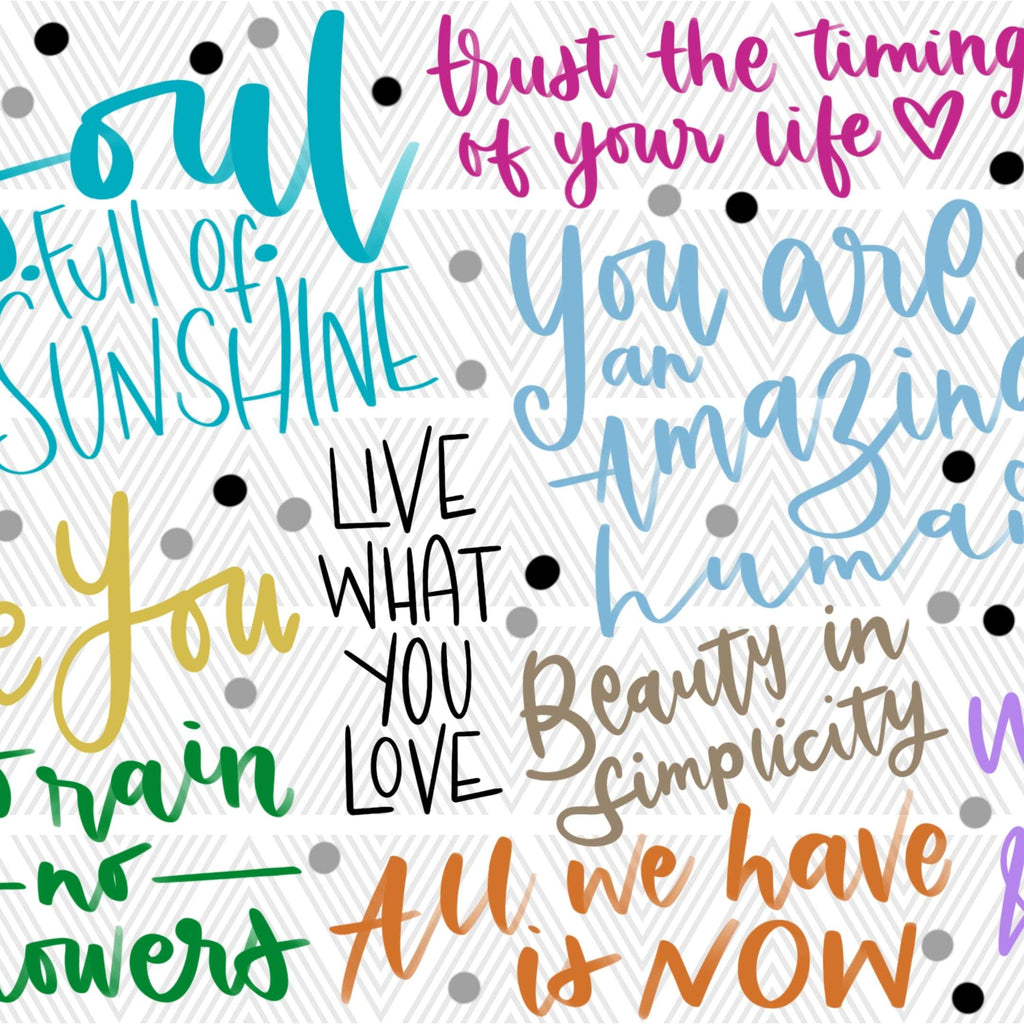 Soul
Full of
SUNSHINE
trust the timing
of your life
You are
an
Amazing
human
LIVE
WHAT
YOU
LOVE
e You
Beauty in
simplicity
rain
no
lowers
All we have
is NOW